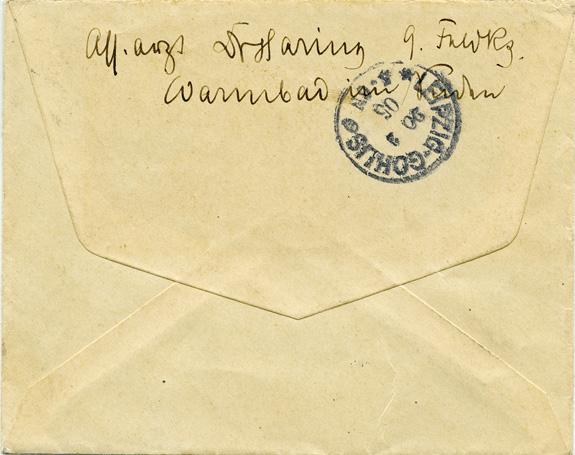 Ass. arzt Dr Haring 9. Feldkp.
Warmbad im Süden
LEIPZIG-GOHLIS
20 3
05